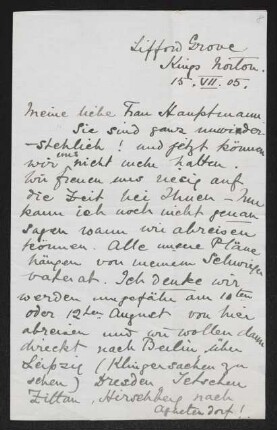 8
Lifford Grove
Kings Norton.
15. VII. 05.
Meine liebe Frau Hauptmann
Sie sind ganz unwieder-
-stehlich! und jetzt können
wir uns nicht mehr halten.
Wir freuen uns riesig auf
die Zeit bei Ihnen - Nun
kann ich noch nicht genau
sagen wann wir abreisen
können. Alle meine Pläne
hängen von meinem Schwieger
vater ab. Ich denke wir
werden ungefähr am 10ten
oder 12ten August von hier
abreisen und wir wollen dann
direckt nach Berlin über
Leipzig (Klingersachen zu
sehen) Dresden Tetschen
Zittau, Hirschberg nach
Agnetendorf!